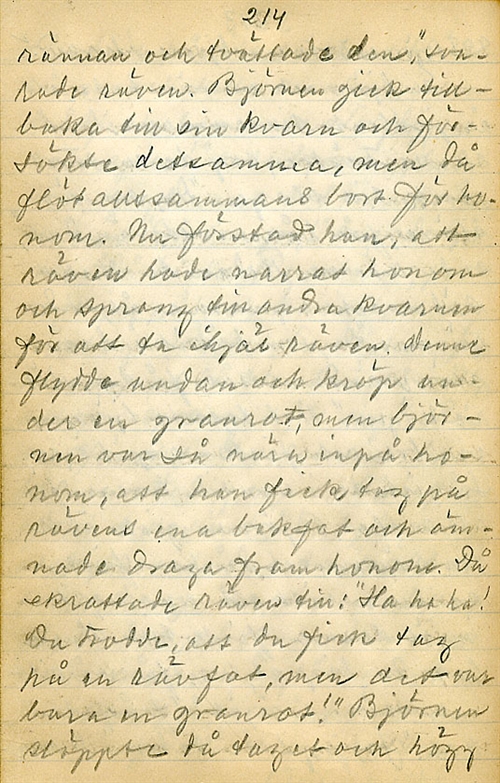 214
rännan och tvättade den," sva-
rade räven. Björnen gick till-
baka till sin kvarn och för-
sökte detsamma, men då
flöt alltsammans bort för ho-
nom. Nu förstod han, att
räven hade narrat honom
och sprang till andra kvarnen
för att ta ihjäl räven. Denne
flydde undan och kröp un-
der en granrot, men björ-
nen var så nära inpå ho-
nom, att han fick tag på
rävens ena bakfot och äm-
nade draga fram honom. Då
skrattade räven till: "Ha ha ha!
Du trodde, att du fick tag
på en rävfot, men det var
bara en granrot!" Björnen
släppte då taget och högg